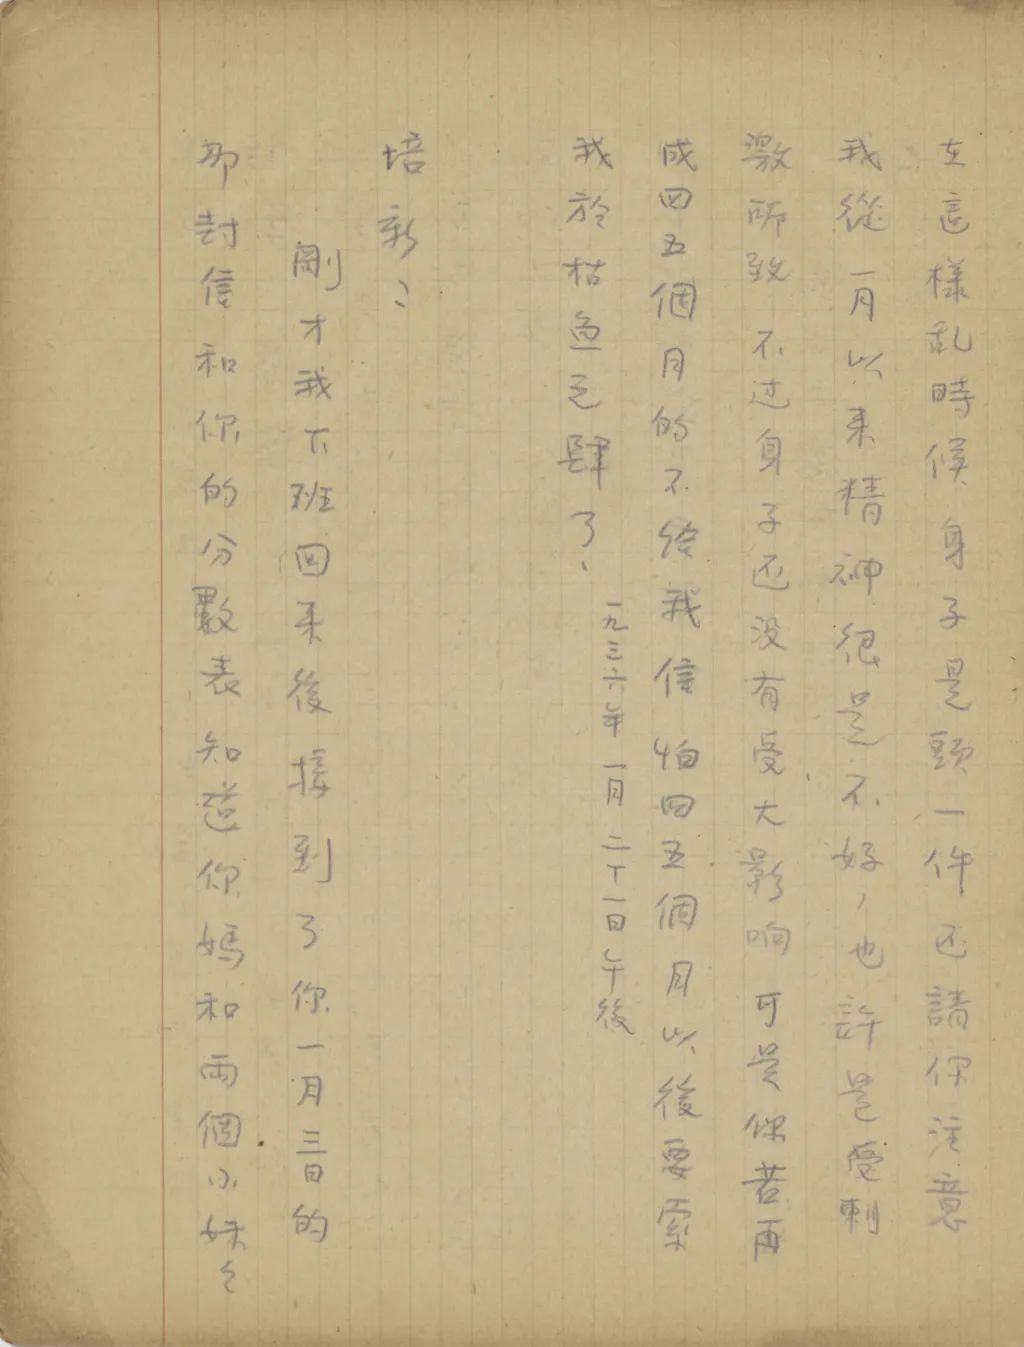 在這樣乱時候身子是頭一件还請你注意
我從一月以来精神很是不好,也許是受刺
激所致不过身子还没有受大影响可是你若再
成四五個月的不给我信怕四五個月以後要索
我於枯鱼之肆了、
一九三六年一月二十一日午後
培新:
剛才我下班回来後接到了你一月三日的
那封信和你的分數表知道你媽和兩個小妹々